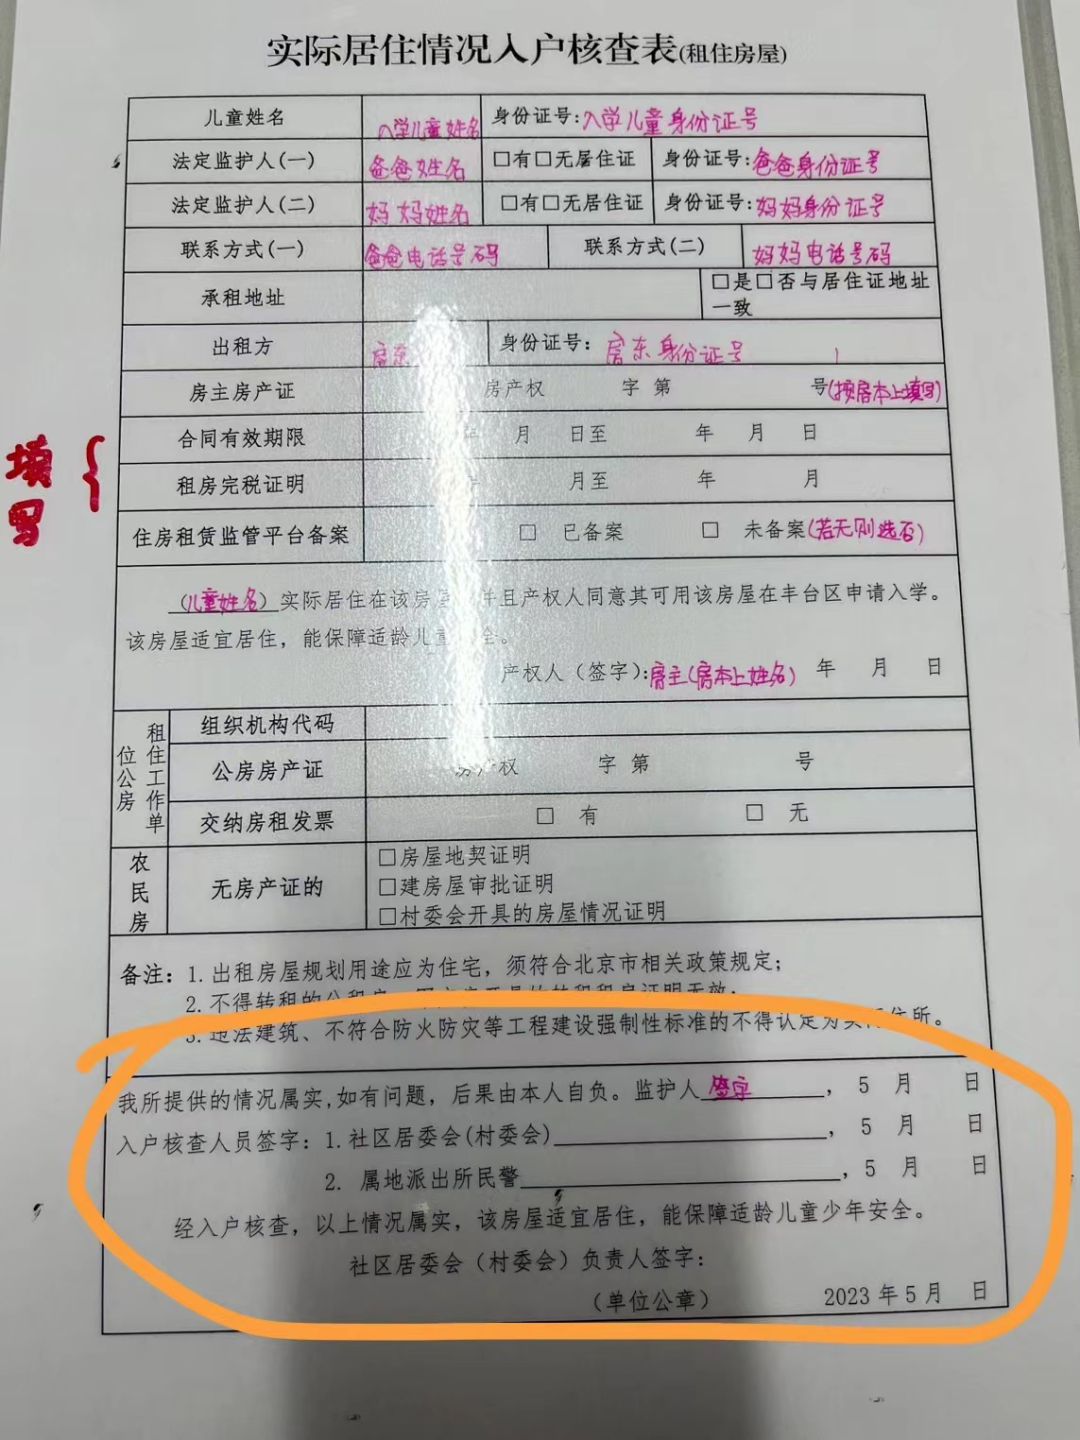 实际居住情况入户核查表(租住房屋)
儿童姓名 入学儿童姓名 身份证号:入学儿童身份证号
法定监护人(一) 爸爸姓名 □有□无居住证 身份证号:爸爸身份证号
法定监护人(二) 妈妈姓名 □有□无居住证 身份证号:妈妈身份证号
联系方式(一) 爸爸电话号码 联系方式(二) 妈妈电话号码
承租地址 □是□否与居住证地址一致
出租方 房东 身份证号: 房东身份证号
房主房产证 房产权 字 第 号(按房本上填写)
填写
合同有效期限 年 月 日至 年 月 日
租房完税证明 年 月至 年 月
住房租赁监管平台备案 □ 已备案 □ 未备案(若无则选否)
(儿童姓名)实际居住在该房 并且产权人同意其可用该房屋在丰台区申请入学。
该房屋适宜居住，能保障适龄儿童 全。
产权人（签字）:房主(房本上姓名) 年 月 日
租住工作单位公房
组织机构代码
公房房产证 房产权 字 第 号
交纳房租发票 □ 有 □ 无
农民房
无房产证的
□房屋地契证明
□建房屋审批证明
□村委会开具的房屋情况证明
备注：1.出租房屋规划用途应为住宅，须符合北京市相关政策规定；
2.不得转租的公租房
3.违法建筑、不符合防火防灾等工程建设强制性标准的不得认定为实际住所。
我所提供的情况属实,如有问题，后果由本人自负。监护人 签字 ，5 月 日
入户核查人员签字：1.社区居委会(村委会) ，5 月 日
2. 属地派出所民警 ，5 月 日
经入户核查，以上情况属实，该房屋适宜居住，能保障适龄儿童少年安全。
社区居委会（村委会）负责人签字：
（单位公章） 2023 年 5 月 日